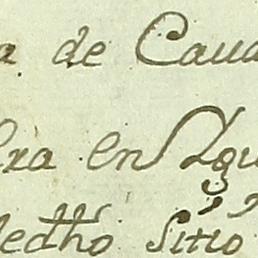 a de Caua
ra en Agu
dedho Sitio